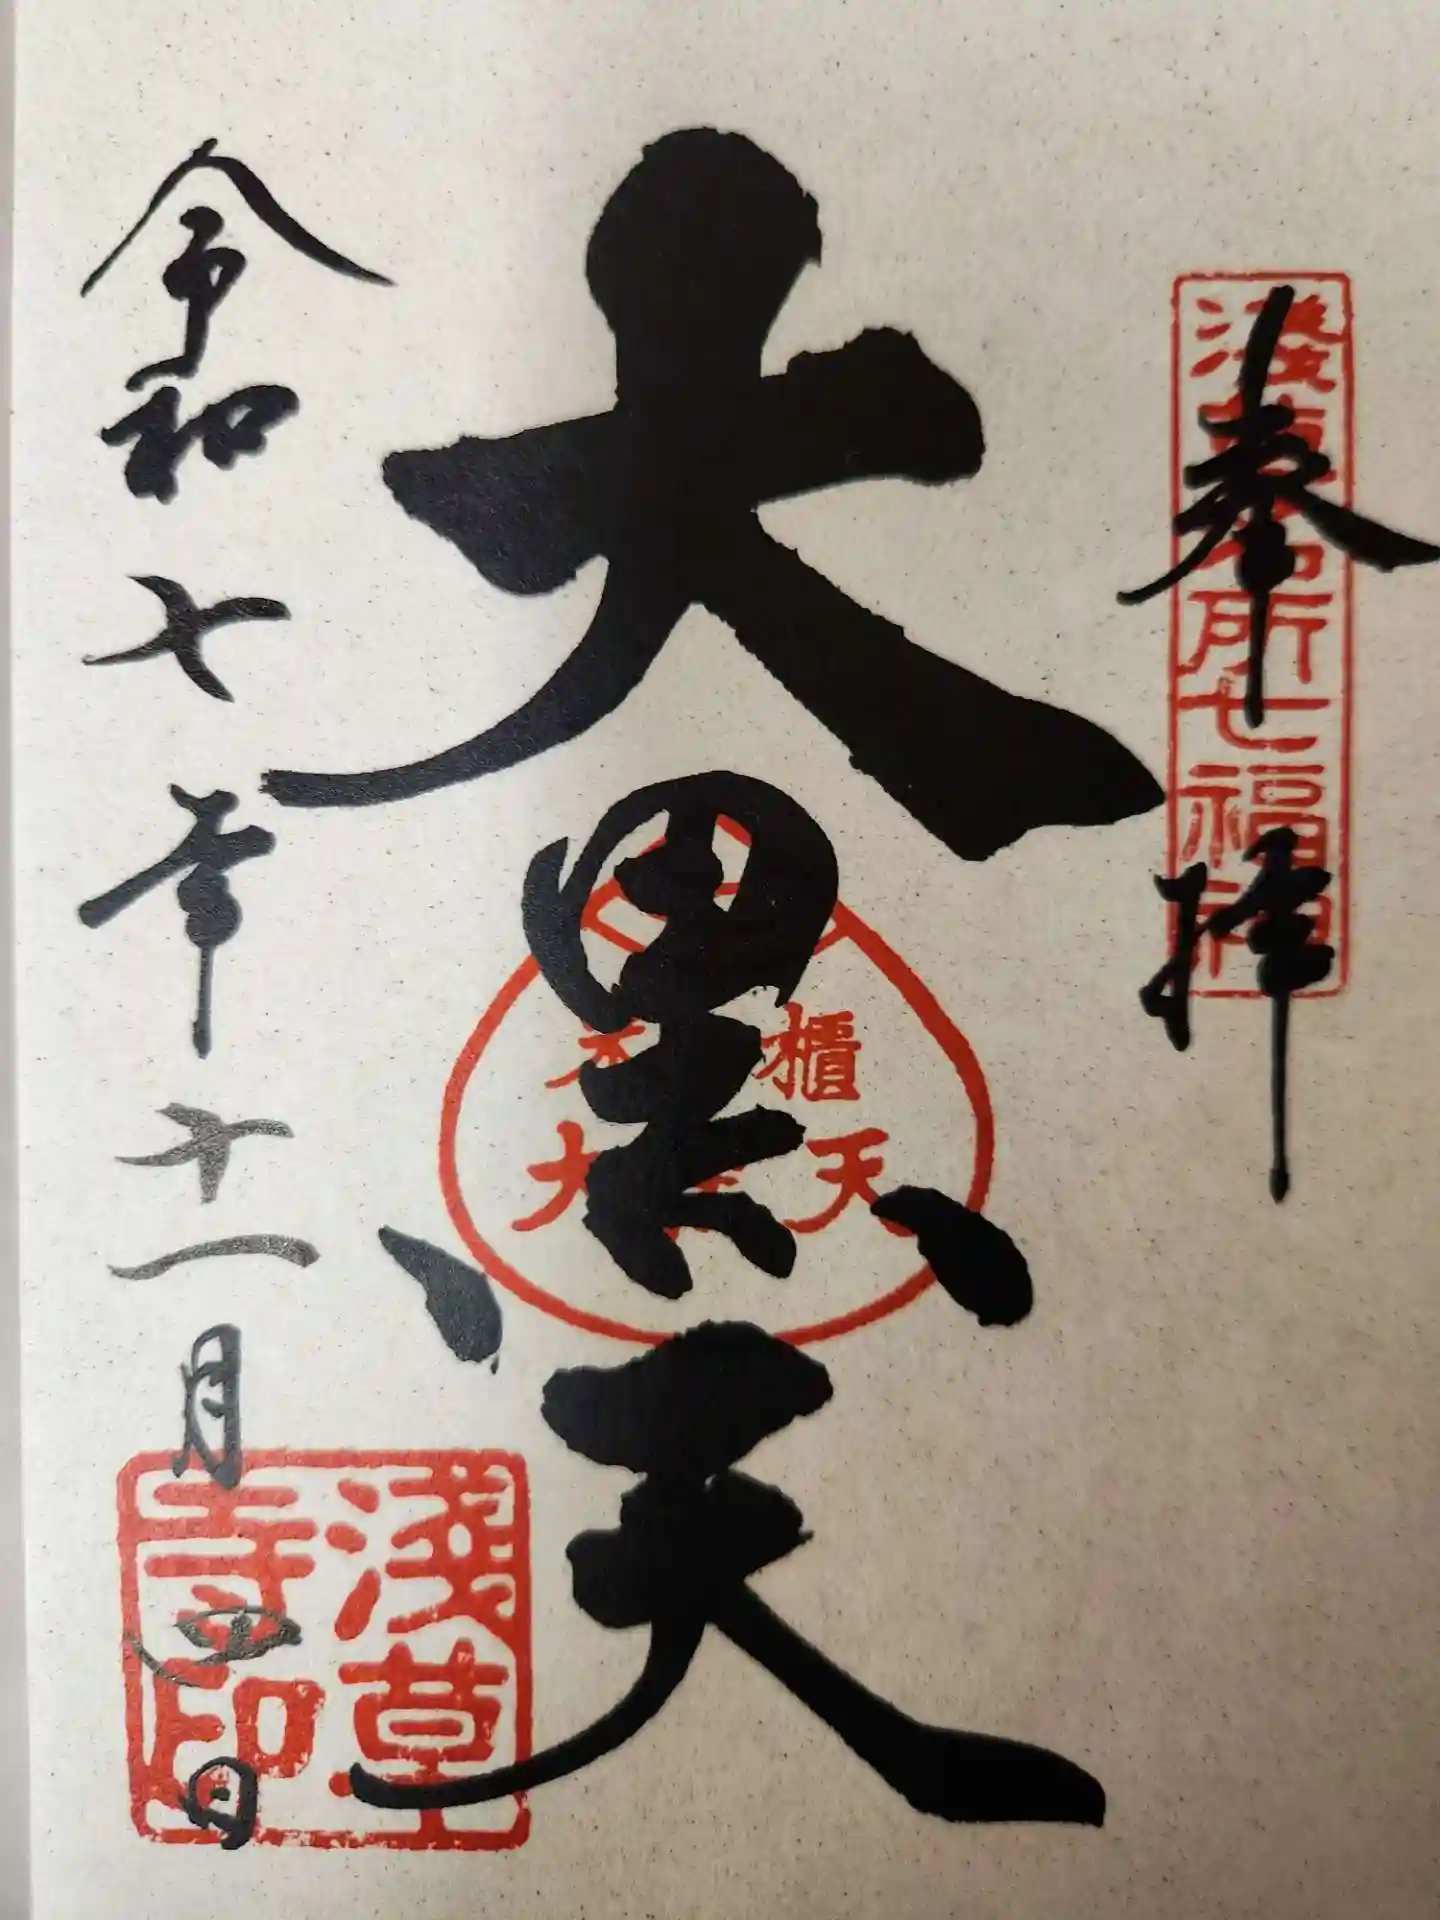 奉拝
淺草名所七福神
大黒天
米櫃
大黒天
令和七年十一月四日
淺草
寺印